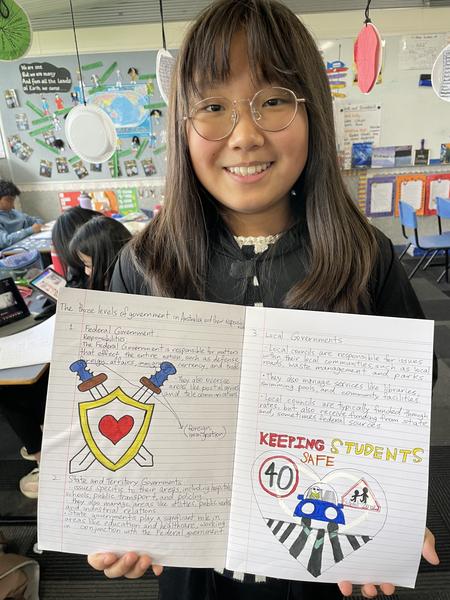 We are one
But we are many
And from all the lands
of Earth we come
The three levels of government in Australia and their
1. Federal Government
Responsibilities
The Federal Government is responsible for matters
that affect the entire nation, such as defense
foreign affairs, immigration, currency, and trade
They also oversee
areas like postal services
and telecommunications.
(foreign,
immigration)
2. State and Territory Governments
issues specific to their areas, including hospitals
schools, public transport, and policing
They also manage areas like utilities, public works
and industrial relations
State governments play a significant role in
areas like education and healthcare, working
conjunction with the Federal government
3 Local Governments
Local councils are responsible for issues
within their local communities such as local
roads, waste management, and parks
They also manage services like libraries,
and community facilities.
Local councils are typically funded through
rates, but also receive funding from state
and sometimes federal sources
KEEPING STUDENTS
SAFE
40